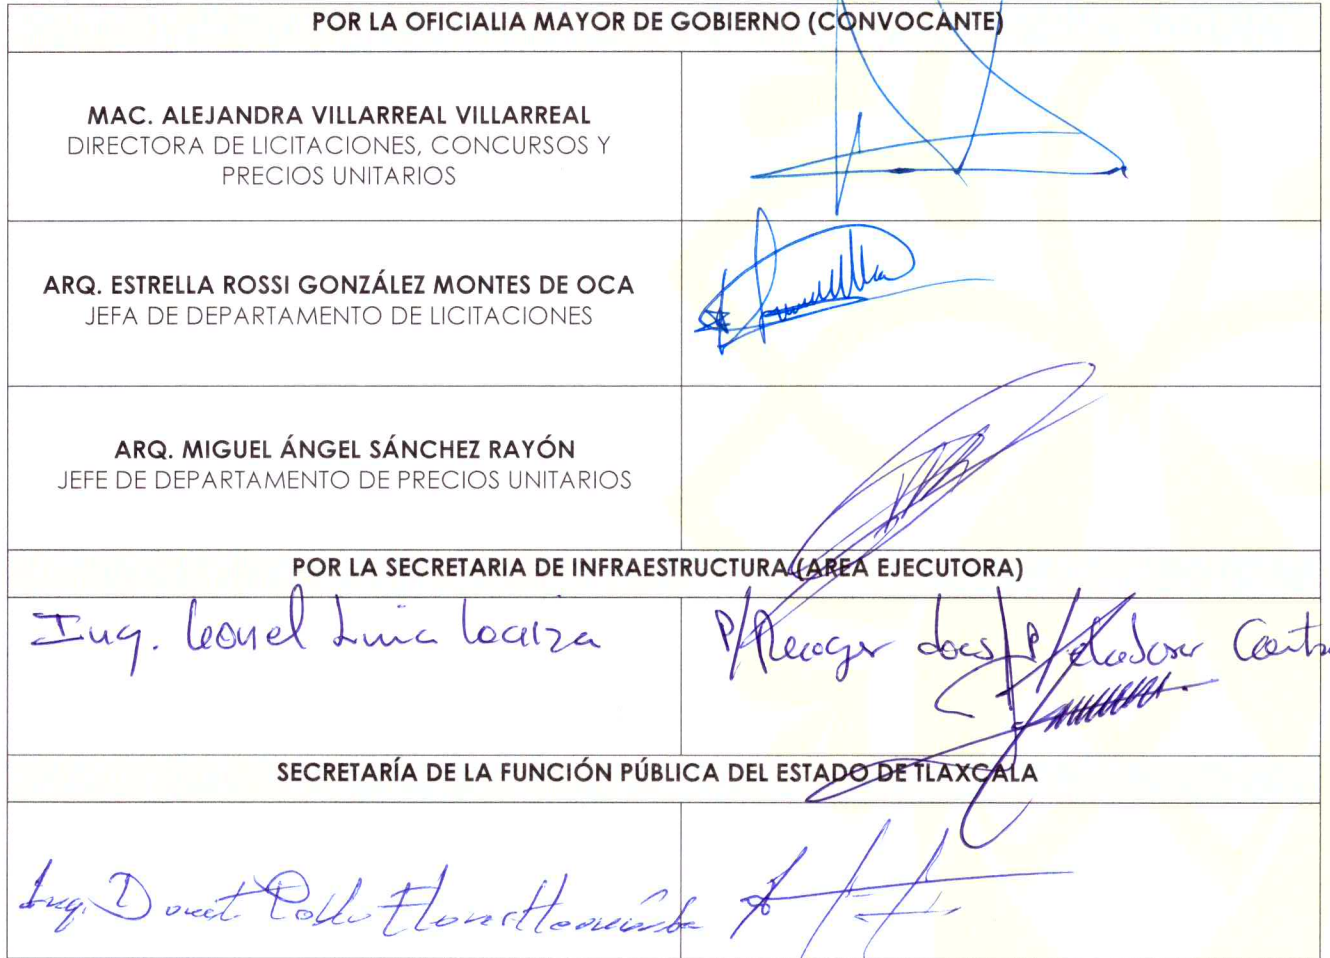 POR LA OFICIALIA MAYOR DE GOBIERNO (CONVOCANTE)
MAC. ALEJANDRA VILLARREAL VILLARREAL
DIRECTORA DE LICITACIONES, CONCURSOS Y
PRECIOS UNITARIOS
ARQ. ESTRELLA ROSSI GONZÁLEZ MONTES DE OCA
JEFA DE DEPARTAMENTO DE LICITACIONES
ARQ. MIGUEL ÁNGEL SÁNCHEZ RAYÓN
JEFE DE DEPARTAMENTO DE PRECIOS UNITARIOS
POR LA SECRETARIA DE INFRAESTRUCTURA (AREA EJECUTORA)
Ing. Leonel Luna Loaiza
P/Recoger docs P/
SECRETARÍA DE LA FUNCIÓN PÚBLICA DEL ESTADO DE TLAXCALA
Ing.